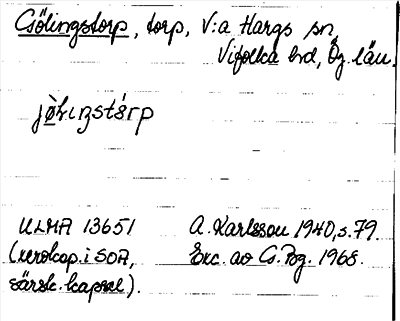 Csölingstorp, torp, V:a Hargs sn,
Vifolka hd, Ög. län.
ULMA 13651
(xerokop. i SOA,
särsk. kapsel).
A. Karlsson 1940, s. 79.
Exc. av G. Bg. 1968.